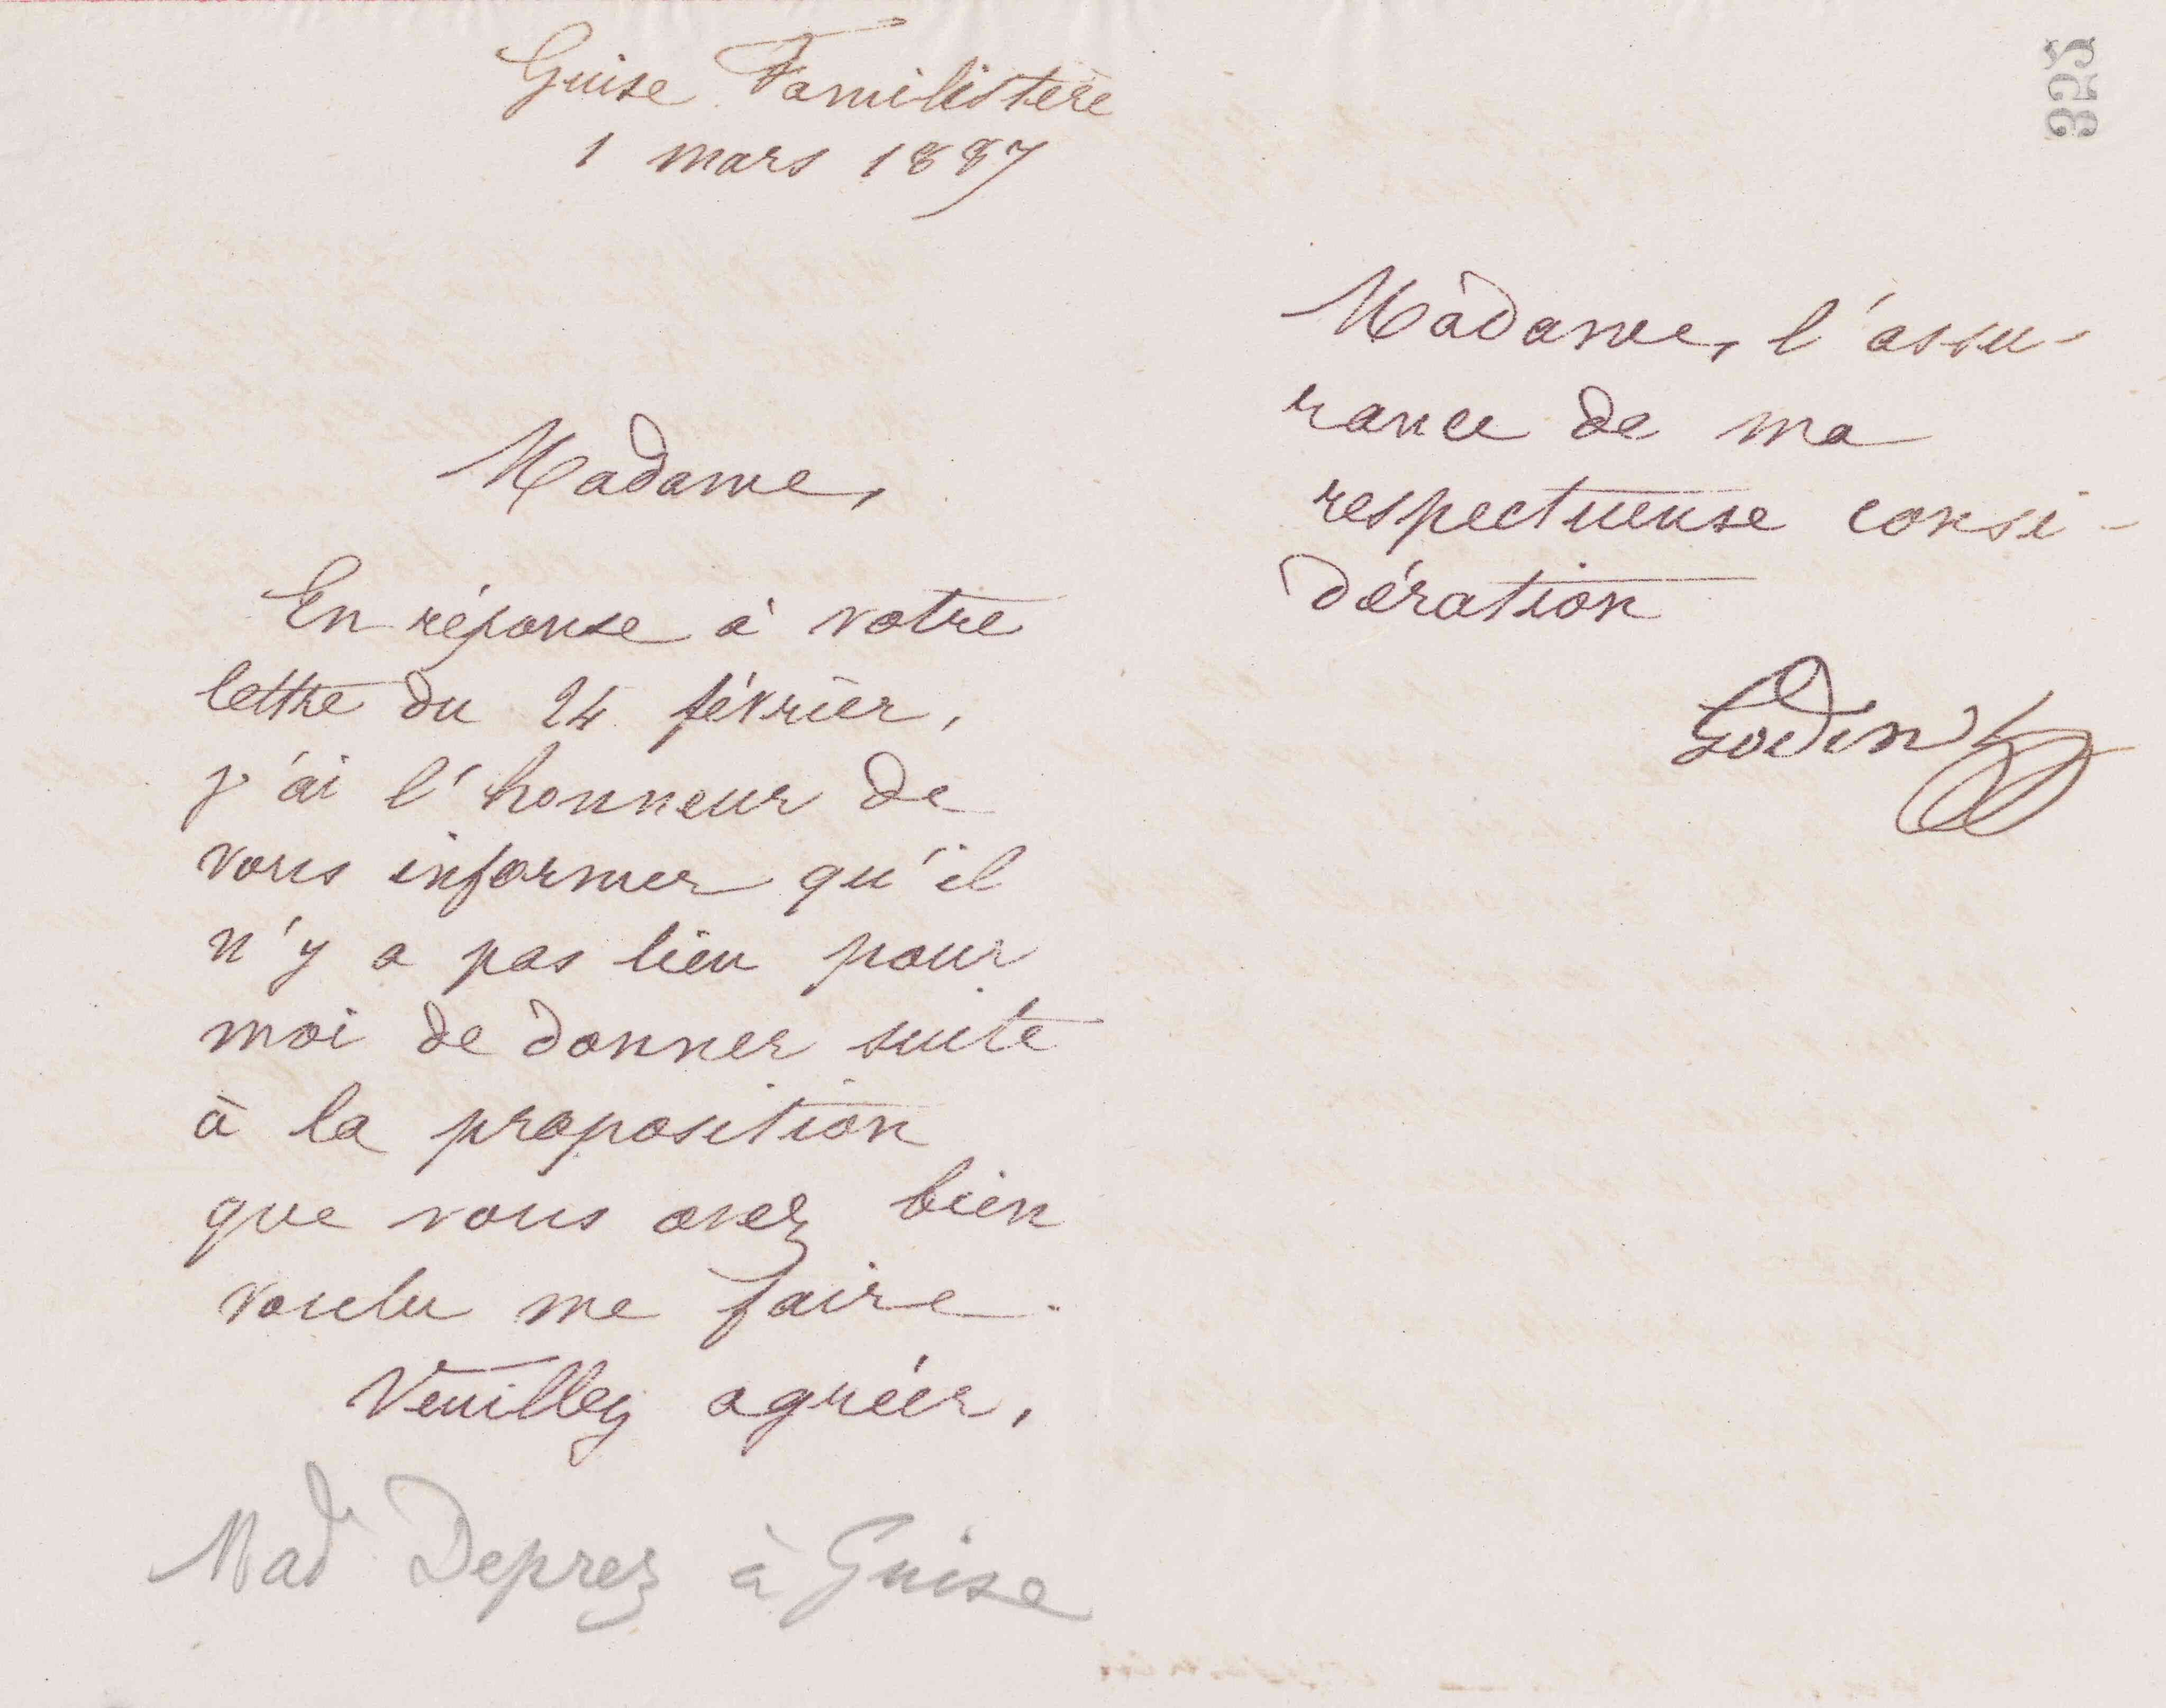 Guise Familistère
1 mars 1887
Madame,
En réponse à votre
lettre du 24 février,
j'ai l'honneur de
vous informer qu'il
n'y a pas lieu pour
moi de donner suite
à la proposition
que vous avez bien
voulu me faire.
Veuillez agréer,
Made Deprez à Guise
352
Madame, l'assu-
rance de ma
respectueuse consi-
dération
Godin